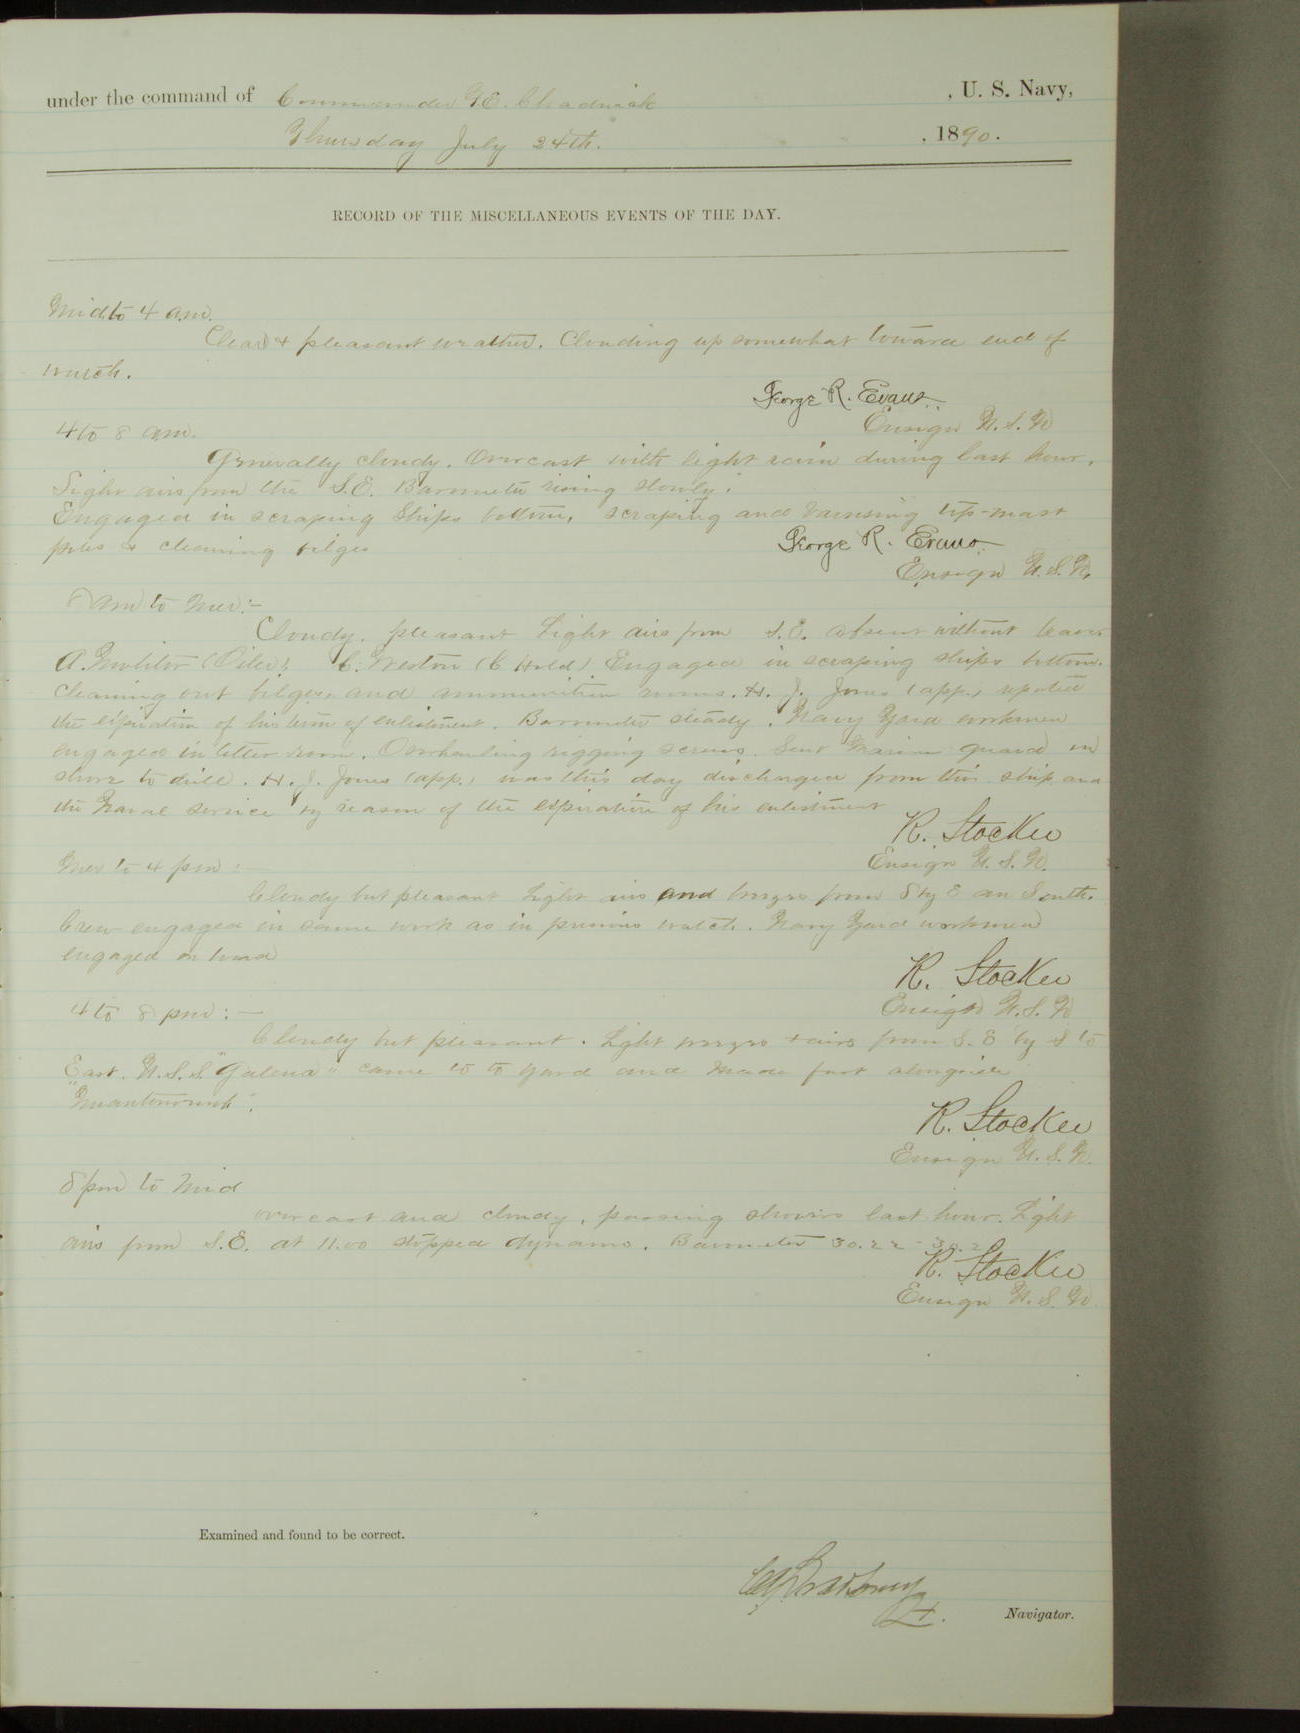 under the command of Commander F.E. Chadwick , U. S. Navy,
Thursday July 24th. , 1890.
RECORD OF THE MISCELLANEOUS EVENTS OF THE DAY.
Mid. to 4 a.m.
Clear & pleasant weather. Clouding up somewhat toward end of
watch.
George R. Evans
Ensign U.S.N
4 to 8 a.m.
Generally cloudy. Overcast with light rain during last hour.
Light airs from the S.E. Barometer rising slowly.
Engaged in scraping Ships bottom, scraping and varnishing top-mast
poles & cleaning bilges
George R. Evans
Ensign U.S.N.
8 am to Mer:-
Cloudy, pleasant Light airs from S.E. absent without leave
A. Molitor (Oiler), C. Weston (C Hold) Engaged in scraping ships bottom.
Cleaning out bilges and ammunition rooms. H. J. Jones (app.) reported
the expiration of his term of enlistment. Barometer steady. Navy Yard workmen
engaged in tiller room. Overhauling rigging screws. Sent Marine guard on
shore to drill. H. J. Jones (app.) was this day discharged from this ship and
the Naval service by reason of the expiration of his enlistment
R. Stocker
Ensign U.S.N.
Mer to 4 pm:
Cloudy but pleasant Light airs and breezes from S by E and South.
Crew engaged in same work as in previous watch. Navy Yard workmen
engaged on board
R. Stocker
Ensign U.S.N
4 to 8 pm:-
Cloudy but pleasant. Light breezes & airs from S.E by S to
East. U.S.S. "Galena" came to yard and made fast alongside
"Miantonomoh".
R. Stocker
Ensign U.S.N.
8 pm to Mid
overcast and cloudy, passing showers last hour. Light
airs from S.E. at 11.00 stopped dynamo. Barometer 30.22 - 30.2
R. Stocker
Ensign U.S.N
Examined and found to be correct.
Navigator.